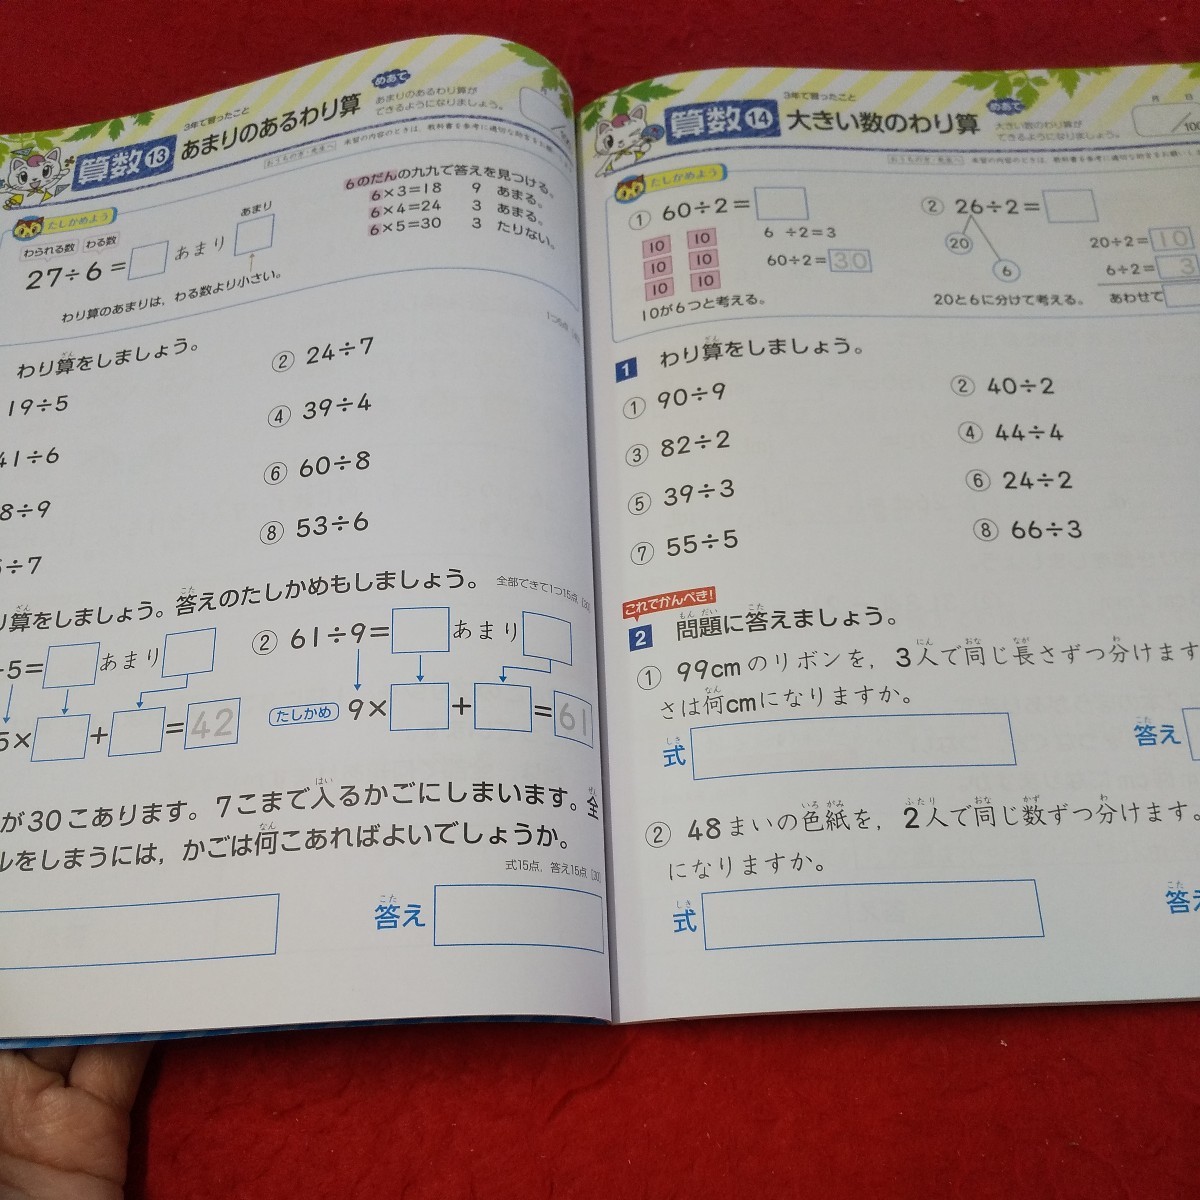 3年で習ったこと
算数 13 あまりのあるわり算
めあて
あまりのあるわり算が
できるようになりましょう。
たしかめよう
わられる数 わる数
あまり
27÷6= あまり
わり算のあまりは，わる数より小さい。
6のだんの九九で答えを見つける。
6×3=18 9 あまる。
6×4=24 3 あまる。
6×5=30 3 たりない。
わり算をしましょう。
19÷5
② 24÷7
④ 39÷4
41÷6
⑥ 60÷8
8÷9
⑧ 53÷6
÷7
り算をしましょう。答えのたしかめもしましょう。
全部できて1つ15点
÷5= あまり
② 61÷9= あまり
5× + = 42
たしかめ 9× + = 61
が30こあります。7こまで入るかごにしまいます。全
ルをしまうには，かごは何こあればよいでしょうか。
式15点，答え15点
答え
3年で習ったこと
算数 14 大きい数のわり算
めあて
大きい数のわり算が
できるようになりましょう。
月 日
/100
たしかめよう
① 60÷2=
10 10
10 10
10 10
6 ÷2=3
60÷2= 30
10が6つと考える。
② 26÷2=
20
6
20÷2= 10
6÷2= 3
あわせて
20と6に分けて考える。
1 わり算をしましょう。
① 90÷9
② 40÷2
③ 82÷2
④ 44÷4
⑤ 39÷3
⑥ 24÷2
⑦ 55÷5
⑧ 66÷3
これでかんぺき！
2 問題に答えましょう。
① 99cmのリボンを，3人で同じ長さずつ分けます
さは何cmになりますか。
式
答え
② 48まいの色紙を，2人で同じ数ずつ分けます。
になりますか。
式
答え